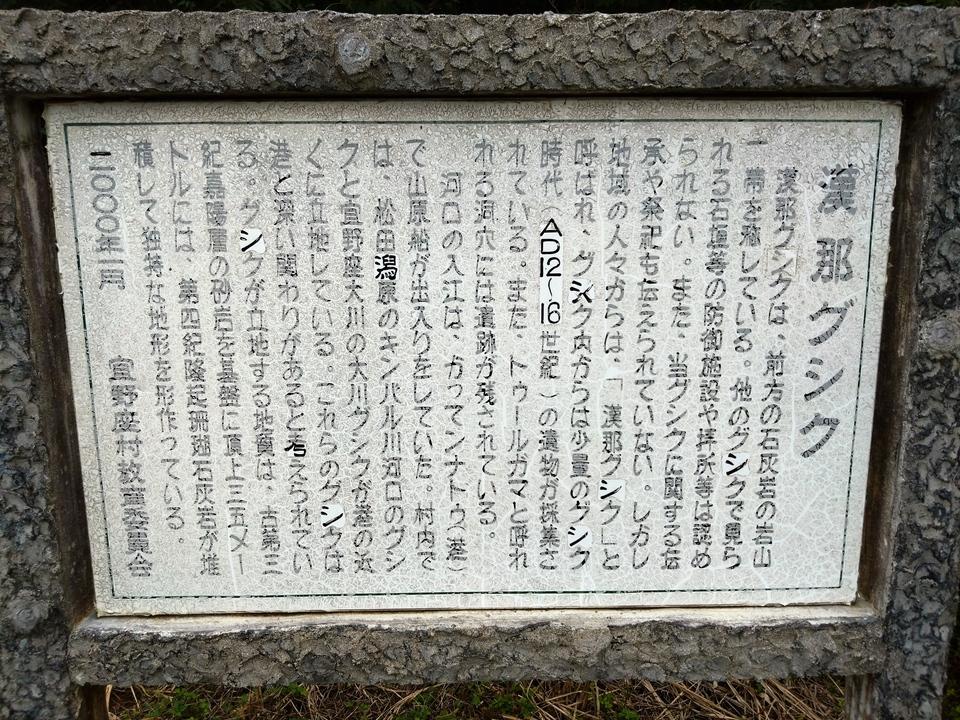 漢那グシク
漢那グシクは、前方の石灰岩の岩山
一帯を称している。他のグシクで見ら
れる石垣等の防御施設や拝所等は認め
られない。また、当グシクに関する伝
承や祭祀も伝えられていない。しかし
地域の人々からは、「漢那グシク」と
呼ばれ、グシク内からは少量のグシク
時代（AD12〜16世紀）の遺物が採集さ
れている。また、トゥールガマと呼れ
れる洞穴には遺跡が残されている。
河口の入江は、かってンナトゥ（港）
で山原船が出入りをしていた。村内で
は、松田潟原のキンバル川河口のグシ
クと宜野座大川の大川グシクが港の近
くに立地している。これらのグシクは
港と深い関わりがあると考えられてい
る。グシクが立地する地質は、古第三
紀嘉陽層の砂岩を基盤に頂上三五メー
トルには、第四紀隆起珊瑚石灰岩が堆
積して独特な地形を形作っている。
二〇〇〇年一月　宜野座村教育委員会